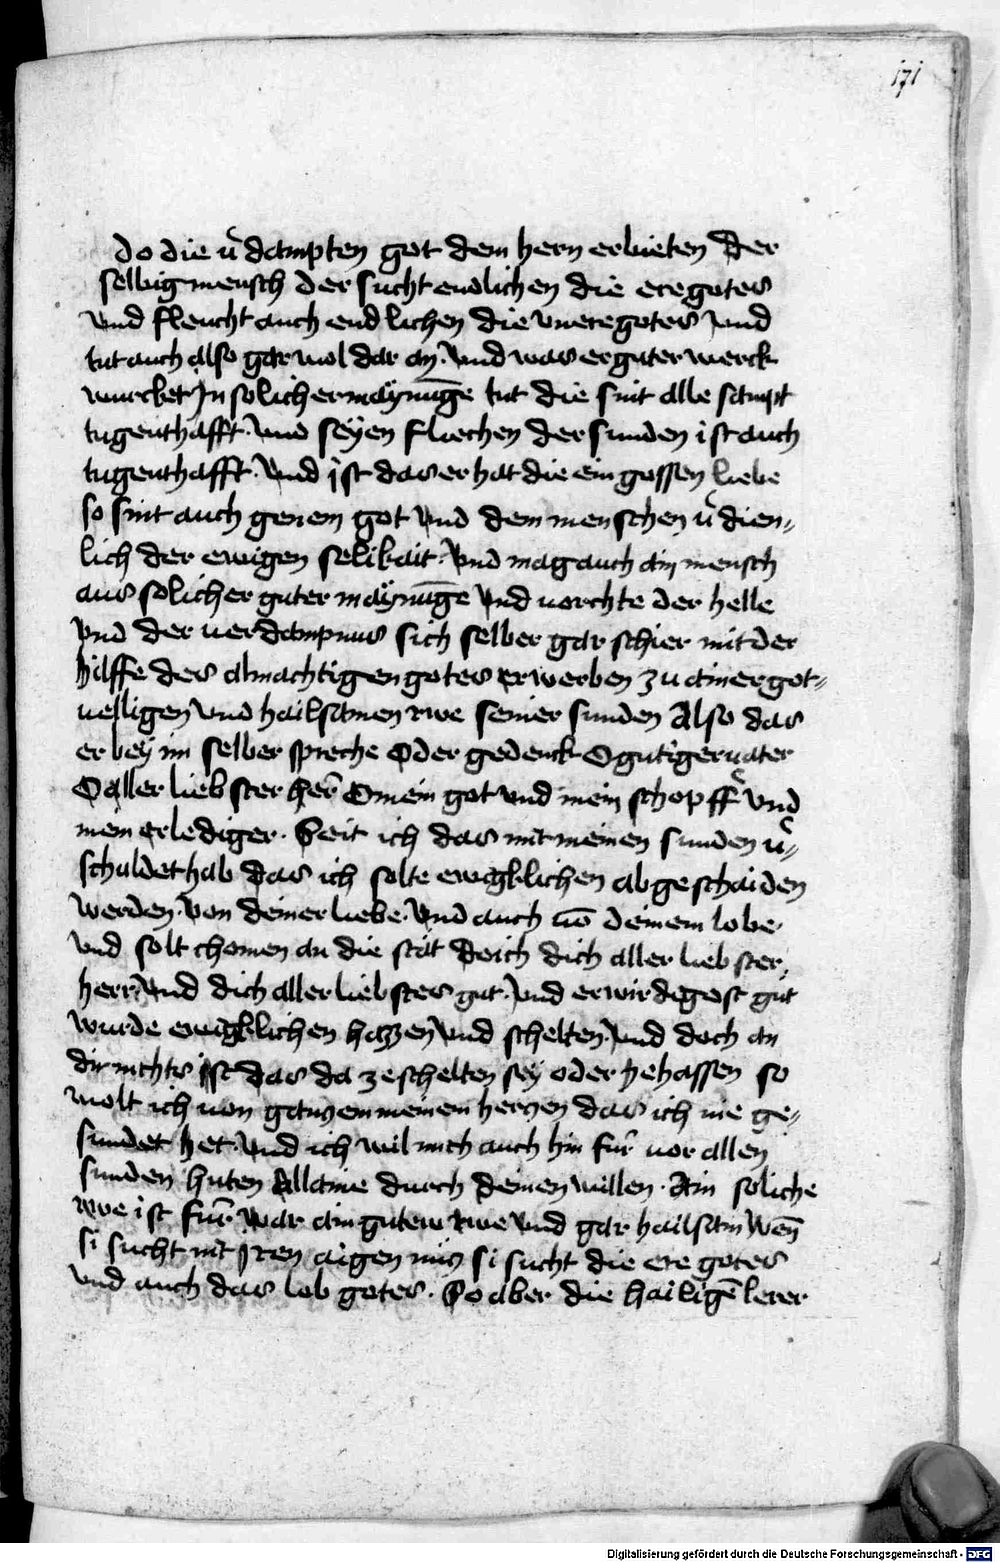 171
do die v̾dampten got dem hern erbieten Der
selbig mensch der sucht endlichen die ere gotes
vnd fleucht auch endlichen die vnere gotes vnd
tut auch also gar wol dar an. Vnd was er guter werck
wurcket In solicher maynūge tut die sint alle sampt
tugenthafft. Vnd seyen fliechen der sunden ist auch
tugenthafft. Vnd ist das er hat die ein gossen liebe
so sint auch genem got vnd dem menschen v̾dien„
lich der ewigen selikait. Vnd mag auch ain mensch
aus solicher guter maynūge vnd vorchte der helle
vnd der verdampnus sich selber gar schier mit der
hilffe des almachtigen gotes erwerben zu ainer got„
uelligen vnd hailsamen rwe seiner sunden Also das
er bey im selber spreche Oder gedenck O gutiger vater
O aller liebster her̄ O mein got vnd mein schopff̾ vnd
mein erlediger. Seit ich das mit meinen sunden v̾„
schuldet hab das ich solte ewigklichen abgeschaiden
werden. Von deiner liebe. Vnd auch vō deinem lobe.
vnd solt chomen an die stat do ich dich aller liebster,
herr. Vnd dich aller liebstes gut. Vnd erwirdigost gut
wurde ewigklichen hazzen vnd schelten. Vnd doch an
dir nichts ist das da ze schelten sey oder hehassen so
wolt ich von ganczem meinem herczen das ich nie ge„
sundet het. Vnd ich wil mich auch hin fur̄ vor allen
sunden huten Allaine durch deinen willen. Ain soliche
rwe ist fur̄ war ain gutew rwe vnd gar hailsam Wen̄
si sucht nit Iren aigen nucz si sucht die ere gotes
vnd auch das lob gotes. So aber die hailigē lerer
Digitalisierung gefördert durch die Deutsche Forschungsgemeinschaft - DFG